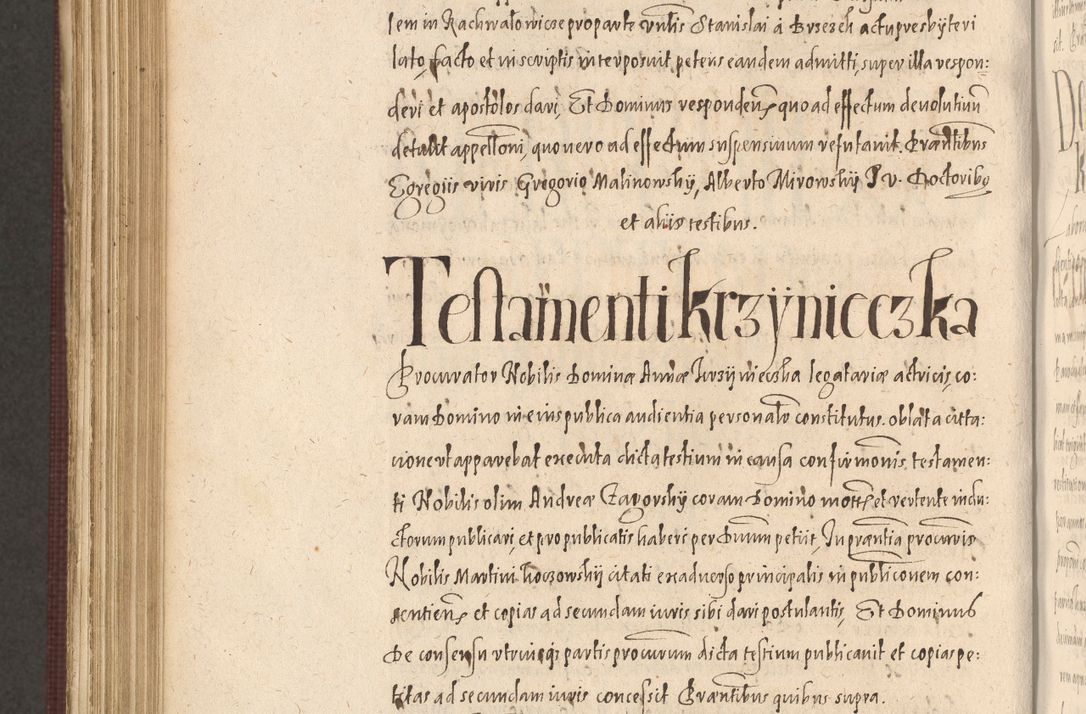 lem in Rachwałowicze pro parte Vnlis Stanislai à Brzezeh actu presbÿteri
lato, facto et in scriptis interposuit petens eandem admitti, super illa respon:
deri et apostolos dari, Et Dominus respondens quoad effectum deuolutiuu
detulit appelloni, quo uero ad effectum suspensiuum refutauit. Præntibus
Egregiis viris Gregorio Malinowskÿ, Alberto Mirowskÿ J v. Doctoribus
et aliis testibus.
Testamenti krzÿnieczka
Procurator Nobilis Dominæ Annæ krzÿnieczka legatariæ actricis, co:
ram Domino in eius publica audientia personalr constitutus. oblata citta:
cione vt apparebat executa dicta testium in causa confirmonis testamen:
ti Nobilis olim Andreæ Zagorskÿ coram Domino motæ et vertente indu:
ctorum publicari, et pro publicatis haberi per Dnum petiit, In præntia procuris
Nobilis Martini koczowskÿ citati ex aduerso principalis in publiconem con:
sentien et copias ad secundam iuris sibi dari postulantis, Et Dominus
De consensu vtriusq partis procurum dicta testium publicauit et copias pe:
titas ad secundam iuris concessit Præntibus quibus supra.